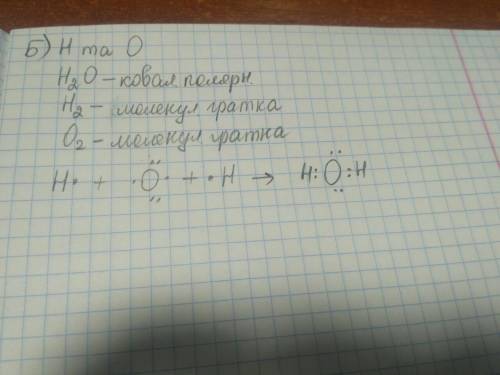 Б) Н та О
H₂O – ковал полярн.
H₂ – молекул гратка
O₂ – молекул гратка
H· + ·Ö̤· + ·H → H:Ö̤:H